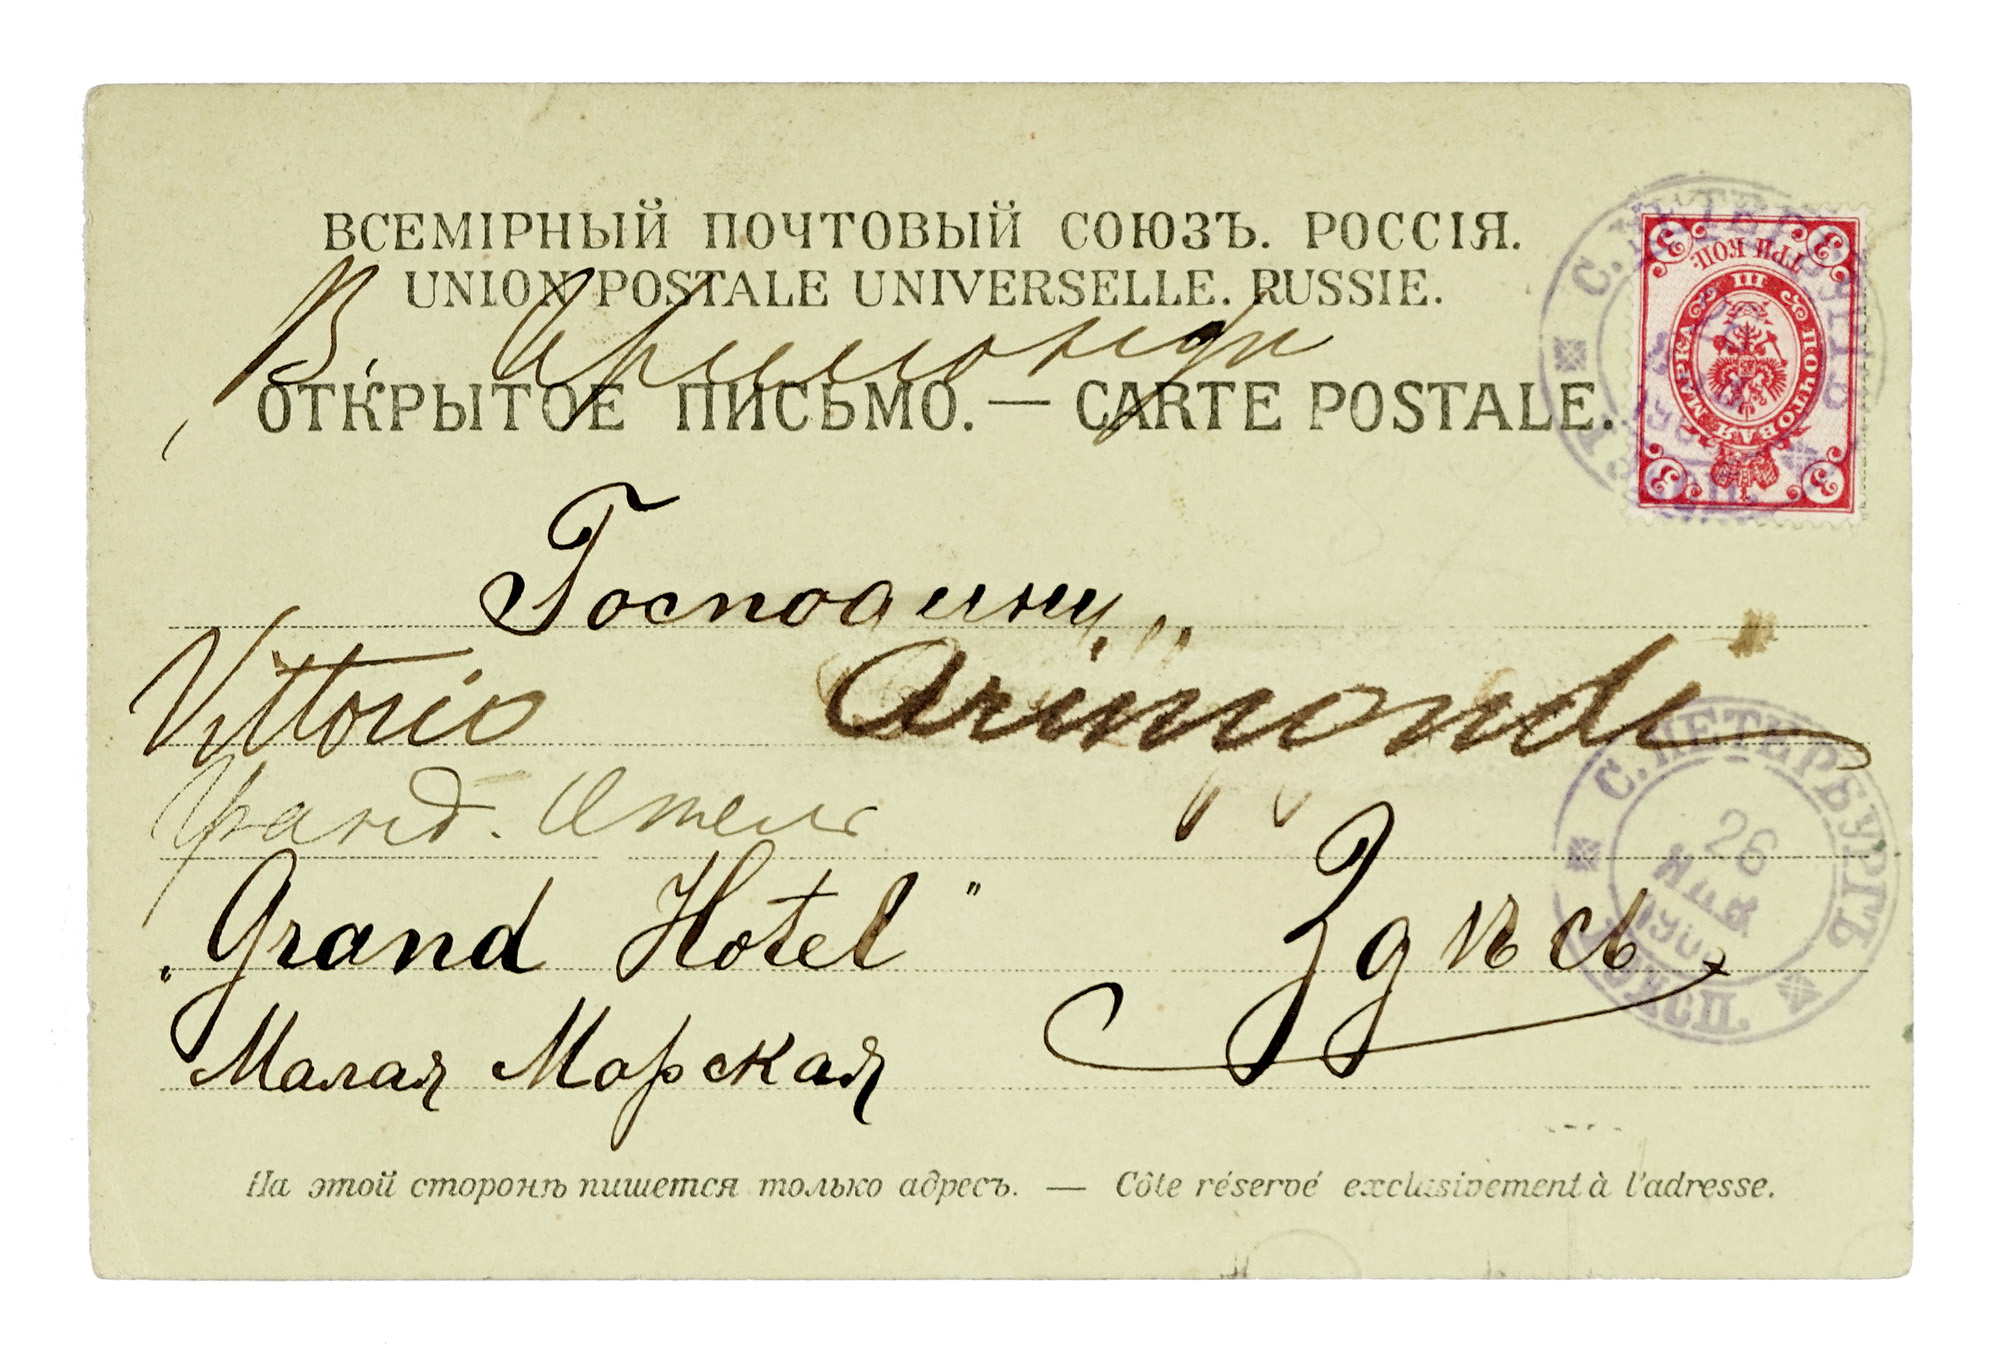 ВСЕМІРНЫЙ ПОЧТОВЫЙ СОЮЗЪ. РОССІЯ.
UNION POSTALE UNIVERSELLE. RUSSIE.
В. Аримонди
ОТКРЫТОЕ ПИСЬМО. — CARTE POSTALE.
С. ПЕТЕРБУРГЪ
ТРИ КОП.
ПОЧТОВАЯ МАРКА
3 3 3 3
Господину
Vittorio Arimondi
Гранд. Отель
"Grand Hotel" Здѣсь
Малая Морская
С. ПЕТЕРБУРГЪ
26
ЭКСП.
На этой сторонѣ пишется только адресъ. — Côte réservé exclusivement à l'adresse.